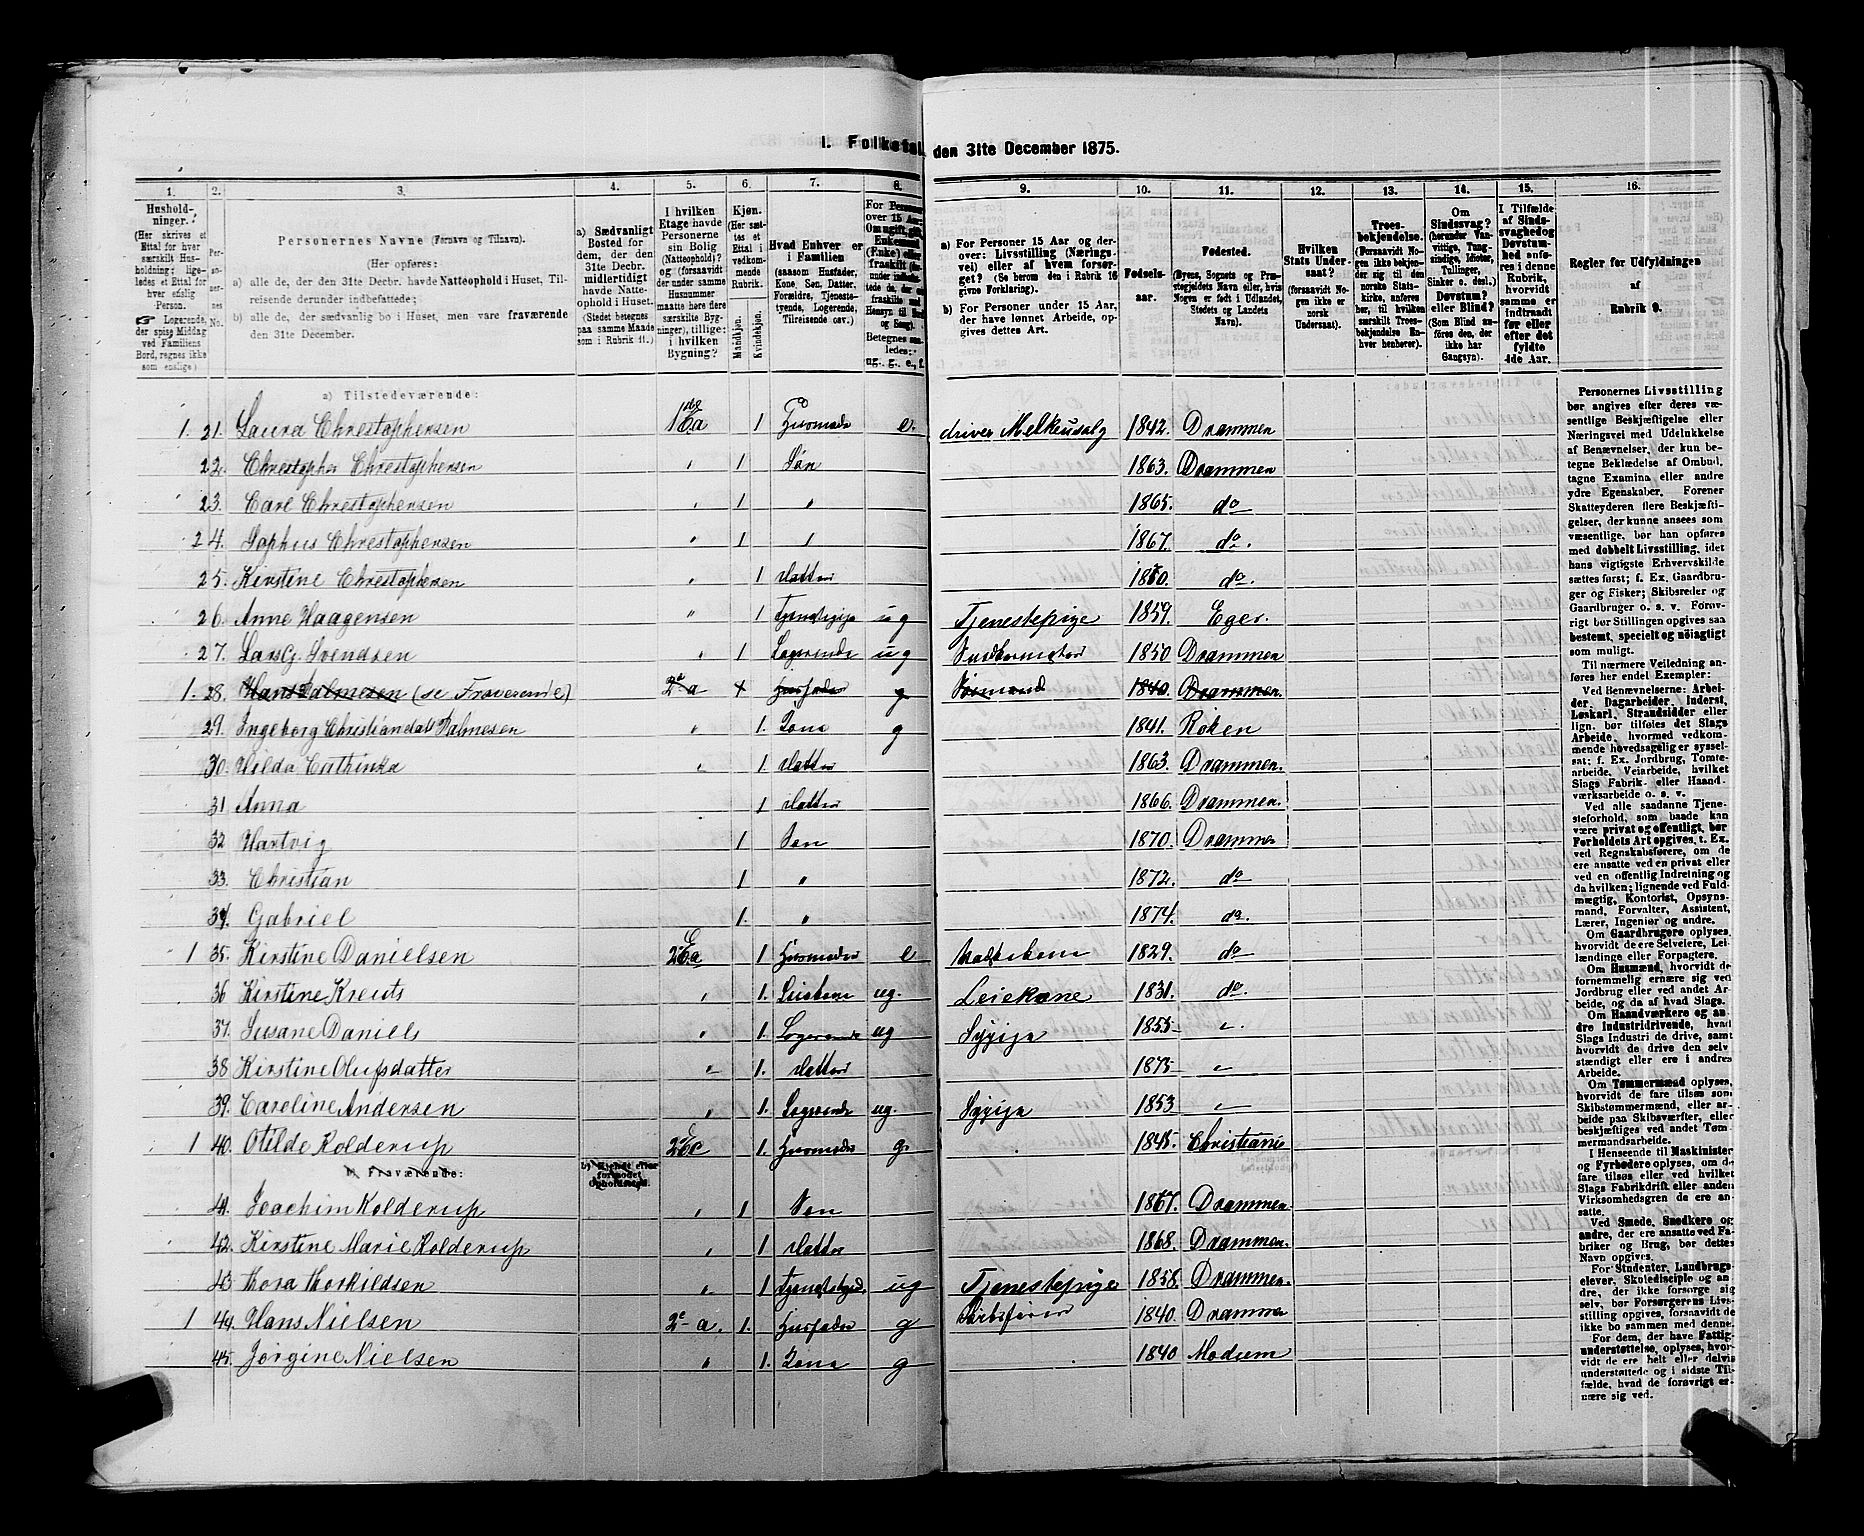 I. Folketal den 31te December 1875.
1. 2. 3. 4. 5. 6. 7. 8. 9. 10. 11. 12. 13. 14. 15. 16.
Hushold-
ninger.
(Her skrives et
Ettal for hver
særskilt Hus-
holdning; lige-
ledes et Ettal for
hver enslig
Person.
Logerende,
der spise Middag
ved Familiens
Bord, regnes ikke
som enslige)
Personernes Navne (Fornavn og Tilnavn).
(Her opføres:
a) alle de, der den 31te Decbr. havde Natteophold i Huset, Til-
reisende derunder indbefattede;
b) alle de, der sædvanlig bo i Huset, men vare fraværende
den 31te December.
a) Sædvanligt
Bosted for
dem, der den
31te Decbr.
midlertidigt
havde Natte-
ophold i Huset.
(Stedet betegnes
paa samme Maade
som i Rubrik 11.)
I hvilken
Etage havde
Personerne
sin Bolig
(Natteophold)?
og (forsaavidt
der under samme
Husnummer
maatte høre flere
særskilte Byg-
ninger), tillige:
i hvilken
Bygning?
Kjøn.
(Her sæt-
tes et
Ettal i
vedkom-
mende
Rubrik.
Mandkjøn.
Kvindekjøn.
Hvad Enhver er
i Familien
(saasom Husfader,
Kone, Søn, Datter,
Forældre, Tjeneste-
tyende, Logerende,
Tilreisende osv.)
a) For Personer 15 Aar og der-
over: Livsstilling (Nærings-
vei) eller af hvem forsør-
get? (Se herom den i Rubrik 16
givne Forklaring).
b) For Personer under 15 Aar,
der have lønnet Arbeide, op-
gives dettes Art.
Fødsels-
aar.
Fødested.
(Byens, Sognets og Præ-
stegjeldets Navn eller, hvis
Nogen er født i Udlandet,
Stedets og Landets
Navn).
Hvilken
Stats Under-
saat?
(forsaavidt No-
gen ikke er
norsk
Undersaat).
Troes-
bekjendelse.
(Forsaavidt No-
gen ikke bekjen-
der sig til den
norske Stats-
kirke, anføres
her, til hvilken
særskilt Troes-
bekjendelse En-
hver henhører).
Om
Sindssvag?
(herunder Van-
vittige, Tung-
sindige, Idioter,
Tullinger,
Sinker o. desl.)
Døvstum?
eller Blind?
(Som Blind an-
føres den, der
ikke har
Gangsyn).
I Tilfælde
af Sinds-
svaghed og
Døvstum-
hed anfø-
res i denne
Rubrik,
hvorvidt
samme er
indtraadt
før eller
efter det
fyldte
4de Aar.
Regler for Udfyldningen
af
Rubrik 9.
a) Tilstedeværende:
1. 21. Laura Christophersen 1ste Ea 1 Husmoder e. driver Melkeudsalg 1842. Drammen
22. Christopher Christophersen " 1 Søn 1863. Drammen
23. Carl Christophersen " 1 " 1865. do
24. Sophus Christophersen " 1 " 1867. do.
25. Kirstine Christophersen " 1 Datter 1870. do.
26. Anne Haagensen " 1 ug Tjenestepige 1859. Eger.
27. Lars G. Svendsen " 1 Logerende ug 1850 Drammen
1. 28. Hans Palmesen (se Fraværende) 2 a + Husfader g Sømand 1840. Drammen.
29. Ingeborg Christiandatt Palmesen " 1. Kone g 1841. Røken
30. Hilda Cathinka " 1. Datter 1863. Drammen.
31 Anna 1 Datter 1866. Drammen.
32 Hartvig 1 Søn 1870. Drammen
33. Christian 1 " 1872. do
34. Gabriel 1. " 1874. do.
1 35. Kirstine Danielsen 2 Ea 1 Husmoder e 1829. do
36 Kirstine Kreuts " 1. ug. Leiekone 1831. do.
37. Susane Daniels " 1. Logerende ug Sypige 1855 "
38 Kirstine Olufsdatter " 1. Datter 1875 "
39. Caroline Andersen " 1. Logerende ug. Sypige 1853 "
1 40. Otilde Kolderup 1. Husmoder g. 1845. Christiania
b) Fraværende: b) Kjendt eller
formodet
Opholdssted.
41. Joachim Kolderup " 1 Søn 1867. Drammen
42. Kirstine Marie Kolderup " 1 Datter 1868. Drammen.
43 Thora Thorkildsen " 1 ug Tjenestepige 1858. Drammen.
1 44. Hans Nielsen 2 a. 1. Husfader g 1840. Drammen
45. Jørgine Nielsen " 1. Kone g 1840 Modum
Personernes Livsstilling
bør angives efter deres væ-
sentlige Beskjæftigelse eller
Næringsvei med Udelukkelse
af Benævnelser, der kun be-
tegne Beklædelse af Ombud,
tagne Examina eller andre
ydre Egenskaber. Forener
Skatteyderen flere Beskjæfti-
gelser, der kunne ansees som
væsentlige, bør han opføres
med dobbelt Livsstilling, idet
hans vigtigste Erhvervskilde
sættes først; f. Ex. Gaardbru-
ger og Fisker; Skibsreder og
Gaardbruger o. s. v. Forøv-
rigt bør Stillingen opgives saa
bestemt, specielt og nøiagtigt
som muligt.
Til nærmere Veiledning an-
føres her endel Exempler:
Ved Benævnelserne: Arbei-
der, Dagarbeider, Inderst,
Løskarl, Strandsidder eller
lign. bør tilføies det Slags
Arbeide, hvormed vedkom-
mende hovedsagelig er syssel-
sat; f. Ex. Jordbrug, Tomte-
arbeide, Veiarbeide, hvilket
Slags Fabrik- eller Haand-
værksarbeide o. s. v.
Ved alle saadanne Tjene-
steforhold, som baade kan
være privat og offentligt, bør
Forholdets Art opgives, t. Ex.
ved Regnskabsførere, om de
ere ansatte ved en privat eller
ved en offentlig Indretning og
da hvilken; lignende ved Fuld-
mægtig, Kontorist, Opsyns-
mand, Forvalter, Assistent,
Lærer, Ingeniør og andre.
Om Gaardbrugere oplyses,
hvorvidt de ere Selveiere, Lei-
lændinge eller Forpagtere.
Om Husmænd, hvorvidt de
fornemmelig ernære sig ved
Jordbrug eller ved andet Ar-
beide, og da af hvad Slags.
Om Haandværkere og an-
dre Industridrivende, hvad
Slags Industri de drive, samt
hvorvidt de drive den selv-
stændigt eller ere i andres
Arbeide.
Om Tømmermænd oplyses,
hvorvidt de fare tilsøs som
Skibstømmermænd, eller ar-
beide paa Skibsværfter, eller
beskjæftiges ved andet Tøm-
mermandsarbeide.
I Henseende til Maskinister
og Fyrbødere oplyses, om de
fare tilsøs eller ved hvilket
Slags Fabrikdrift eller anden
Virksomhedsgren de ere an-
satte.
Ved Smede, Snedkere og
andre, der ere ansatte ved Fa-
briker og Brug, bør dettes
Navn opgives.
For Studenter, Landbrugs-
elever, Skoledisciple og an-
dre, der ikke forsørge sig
selv, bør Forsørgerens Livs-
stilling opgives, forsaavidt de
ikke bo sammen med denne.
For dem, der have Fattig-
understøttelse, oplyses, hvor-
vidt de ere helt eller delvis
understøttede og i sidste Til-
fælde, hvad de forøvrigt er-
nære sig ved.